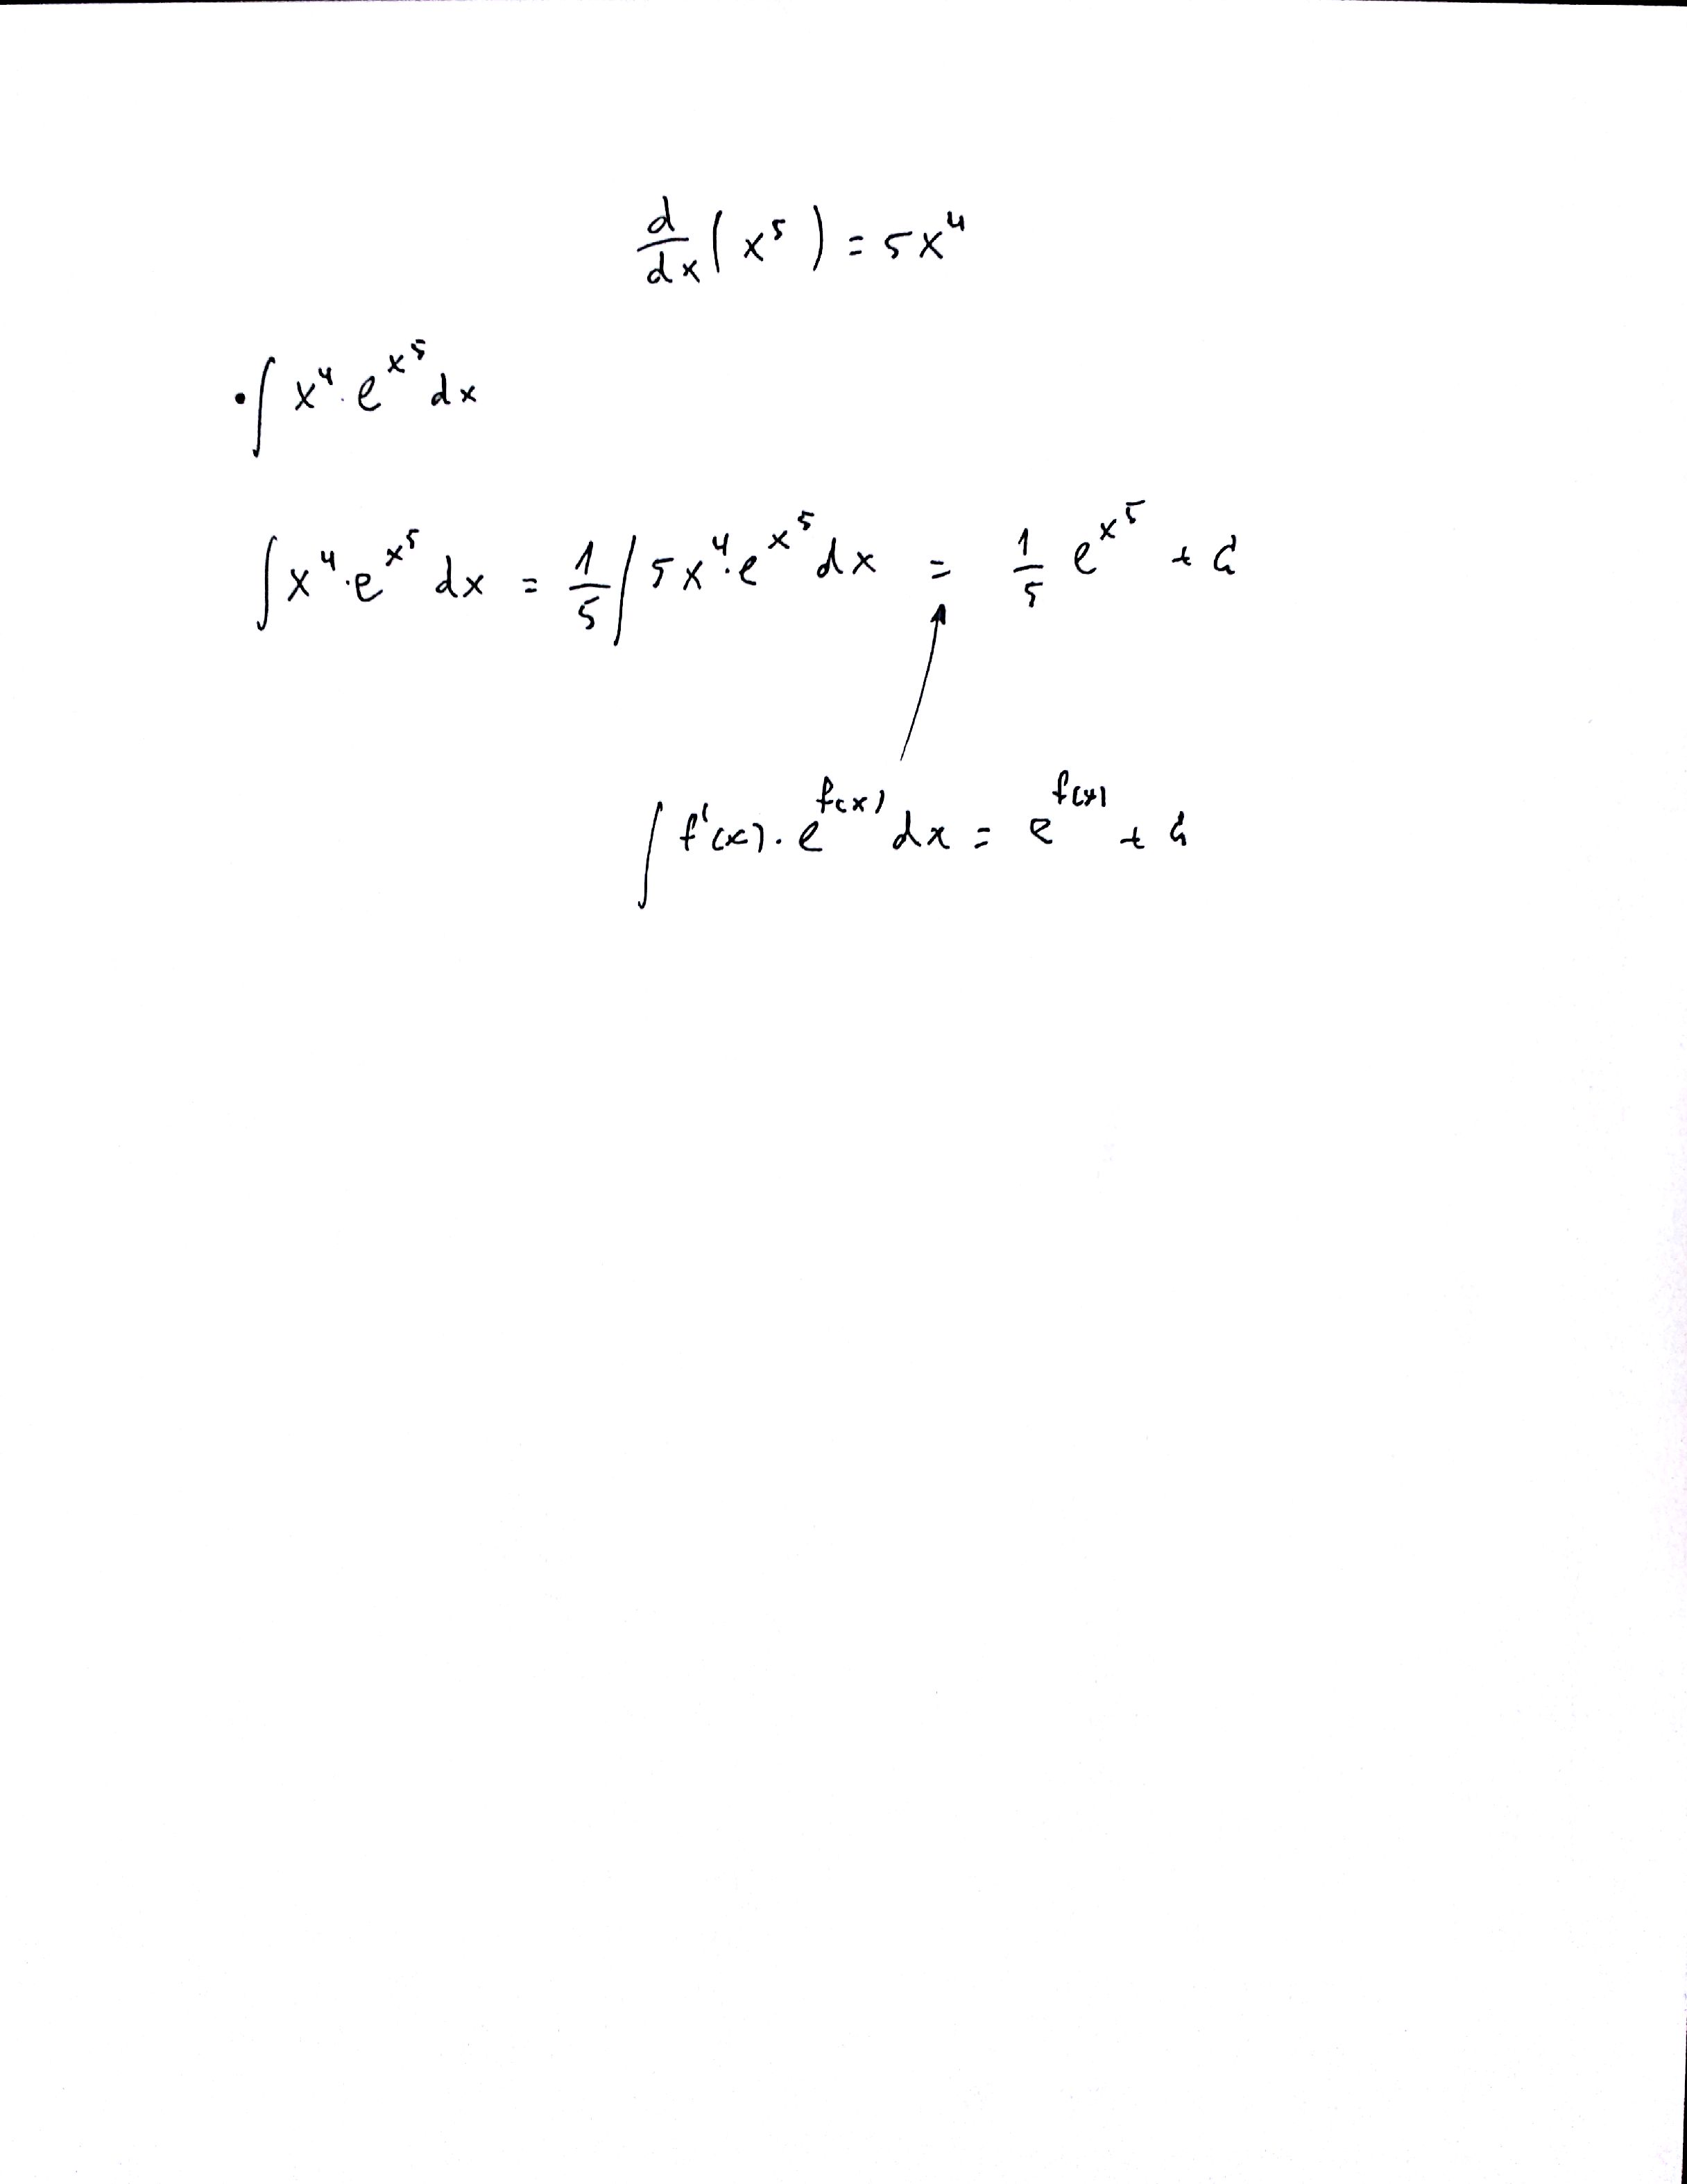 d/dx (x⁵) = 5x⁴
• ∫ x⁴·e^(x⁵) dx
∫ x⁴·e^(x⁵) dx = 1/5 ∫ 5x⁴·e^(x⁵) dx = 1/5 e^(x⁵) + C
∫ f'(x)·e^(f(x)) dx = e^(f(x)) + C